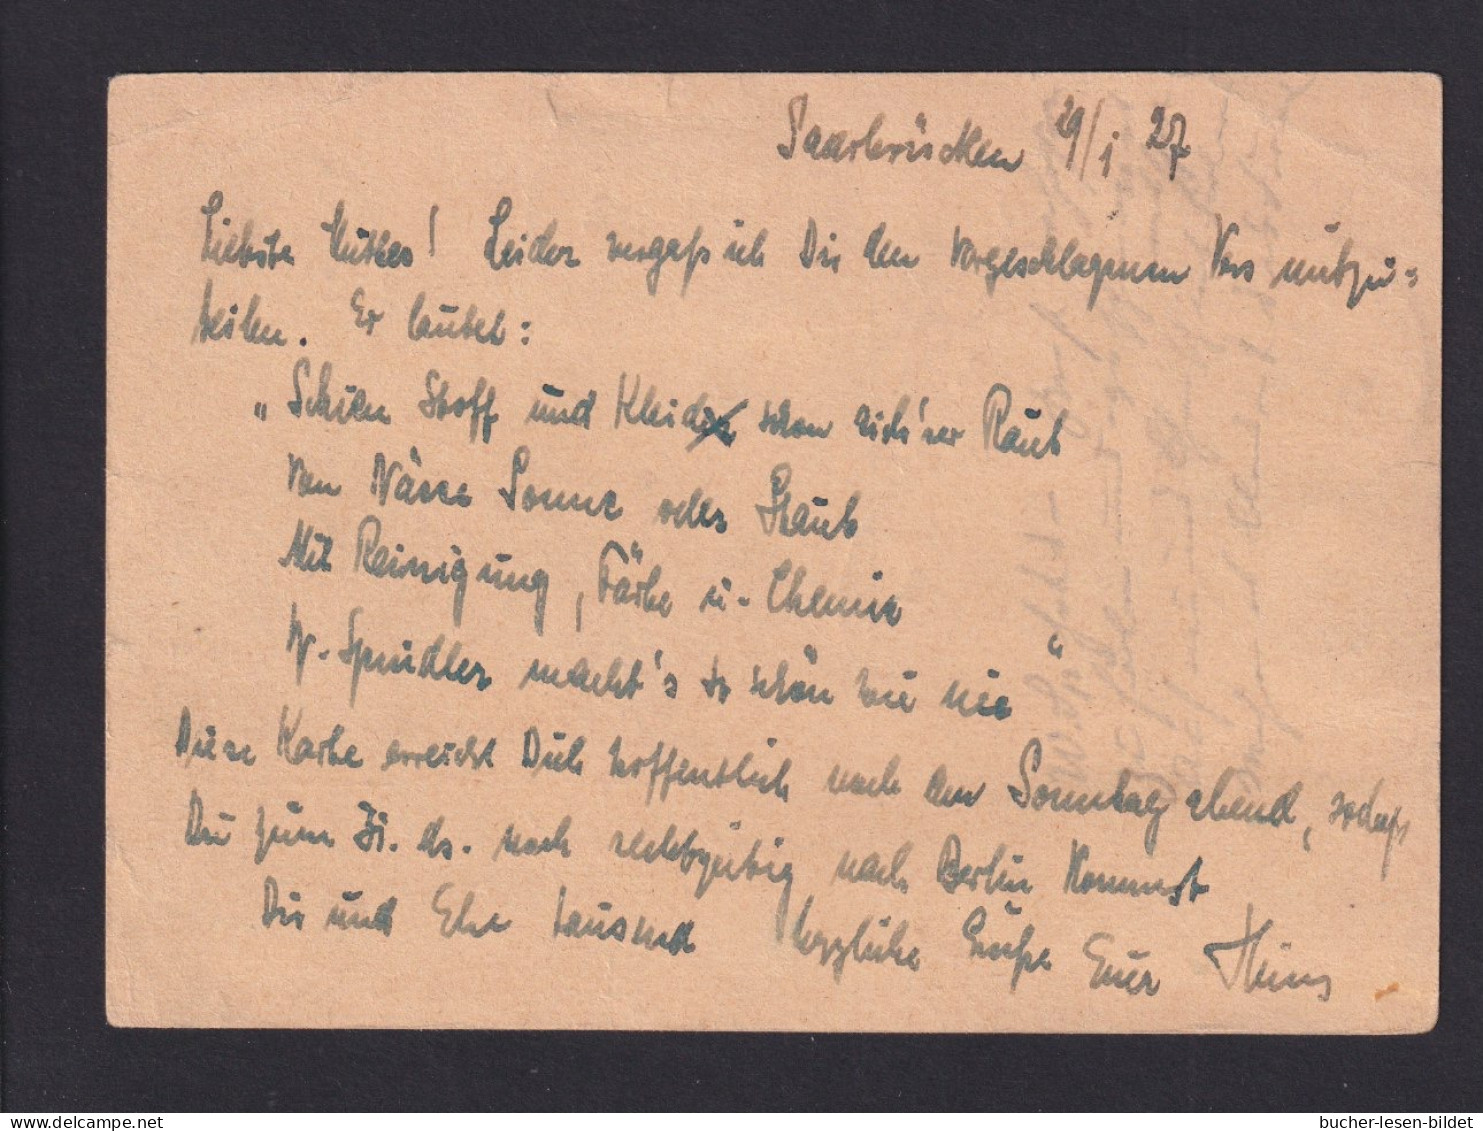 Saarbrücken 29/1 27
Liebste Muttes! Leider vergaß ich Dir den vorgeschlagenen Vers mitzu=
teilen. Er lautet:
„ Stoff und Kleid schon Raub
von Nässe Sonne oder Staub
Mit Reinigung, Färbe u. Chemie
W. Spindler macht's so schön wie nie“
Diese Karte erreicht Dich hoffentlich noch am Sonntag abend, sodaß
Du zum 31. ds. noch rechtzeitig nach Berlin kommst
Dir und Else tausend herzliche Grüße Euer Heinz
bucher-lesen-bildet